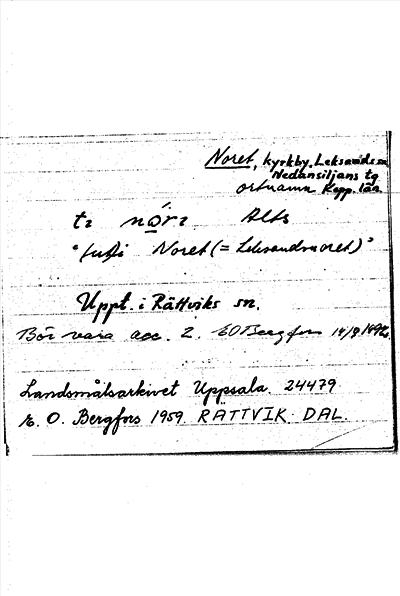 Noret, kyrkby, Leksands sn
Nedansiljans tg
ortnamn Kopp. län
Noret (= Leksandsnoret)"
Uppt. i Rättviks sn.
Bör vara acc. 2. EO Bergfors
Landsmålsarkivet Uppsala. 24479
E. O. Bergfors 1959. RÄTTVIK. DAL.